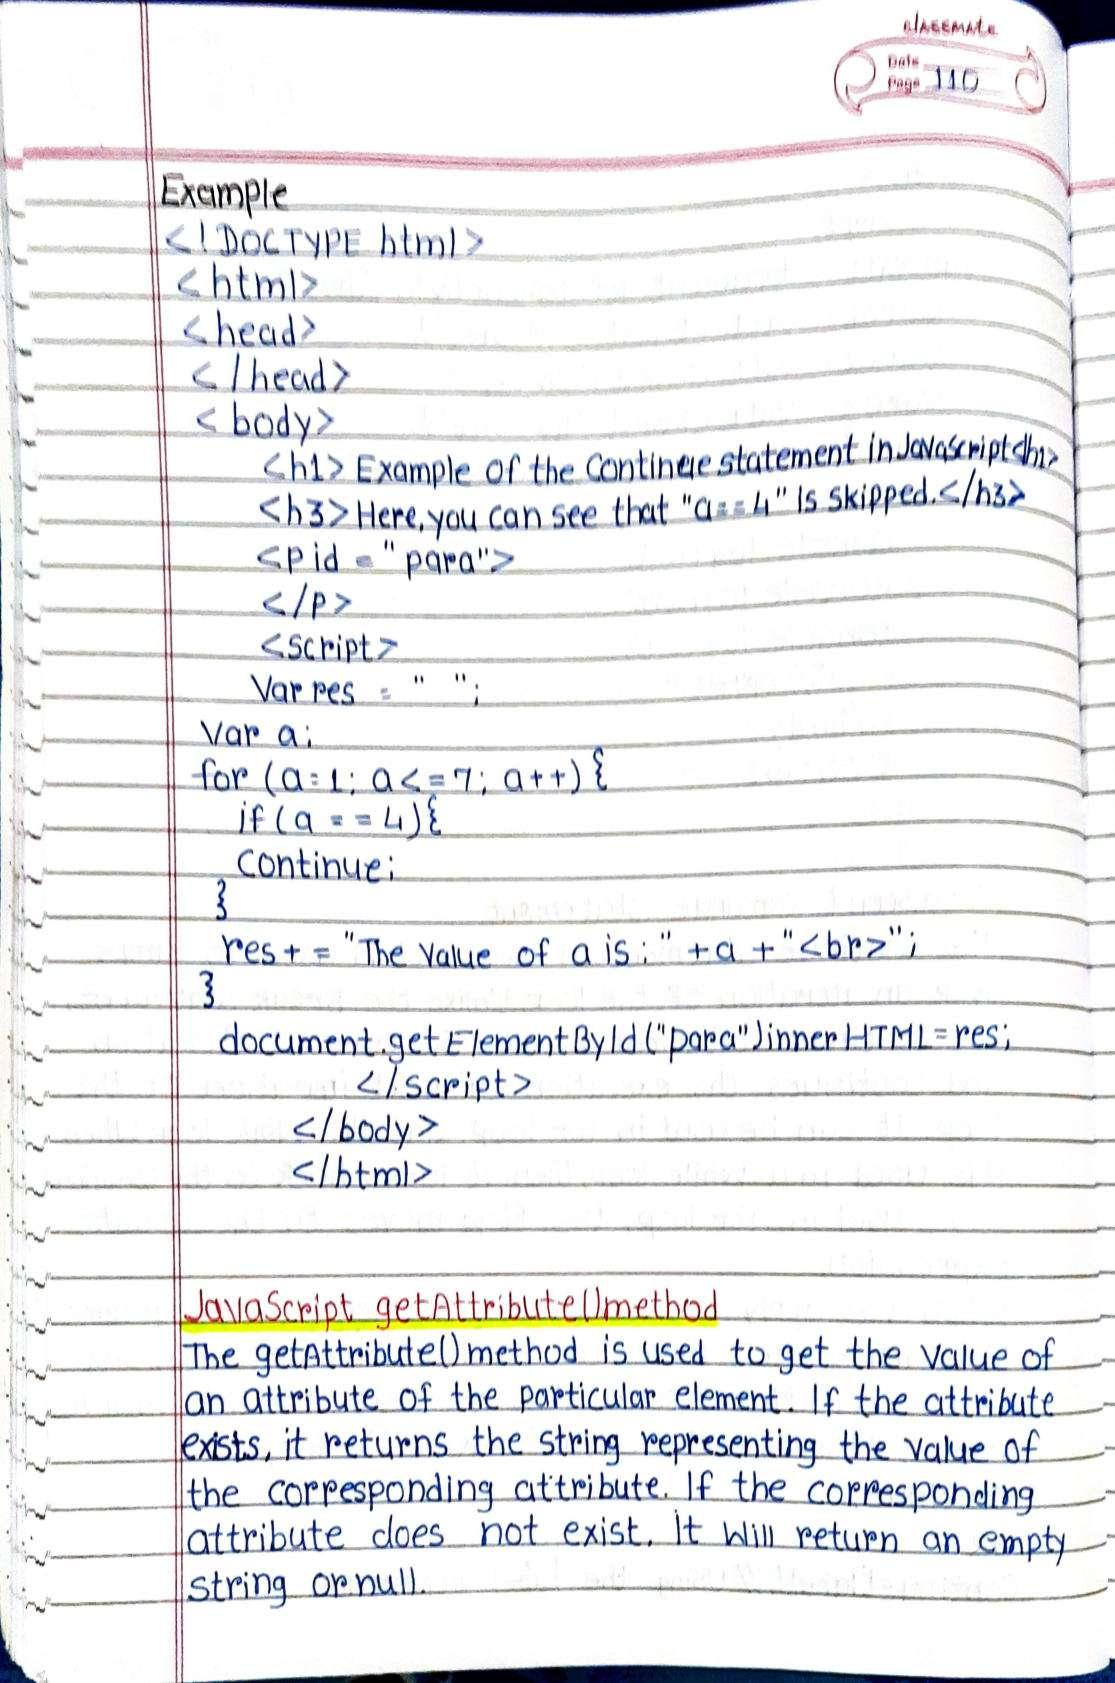 classmate
Date
Page 110
Example
<!DOCTYPE html>
<html>
<head>
</head>
<body>
<h1> Example of the Continue statement in JavaScript</h1>
<h3> Here, you can see that "a==4" is skipped.</h3>
<p id = "para">
</p>
<script>
Var res = " ";
Var a;
for (a=1; a<=7; a++) {
if (a == 4){
continue;
}
res += "The value of a is : " +a + "<br>";
}
document.getElementById("para")innerHTML=res;
</script>
</body>
</html>
JavaScript getAttribute()method
The getAttribute() method is used to get the value of
an attribute of the particular element. If the attribute
exists, it returns the string representing the value of
the corresponding attribute. If the corresponding
attribute does not exist, it will return an empty
string or null.